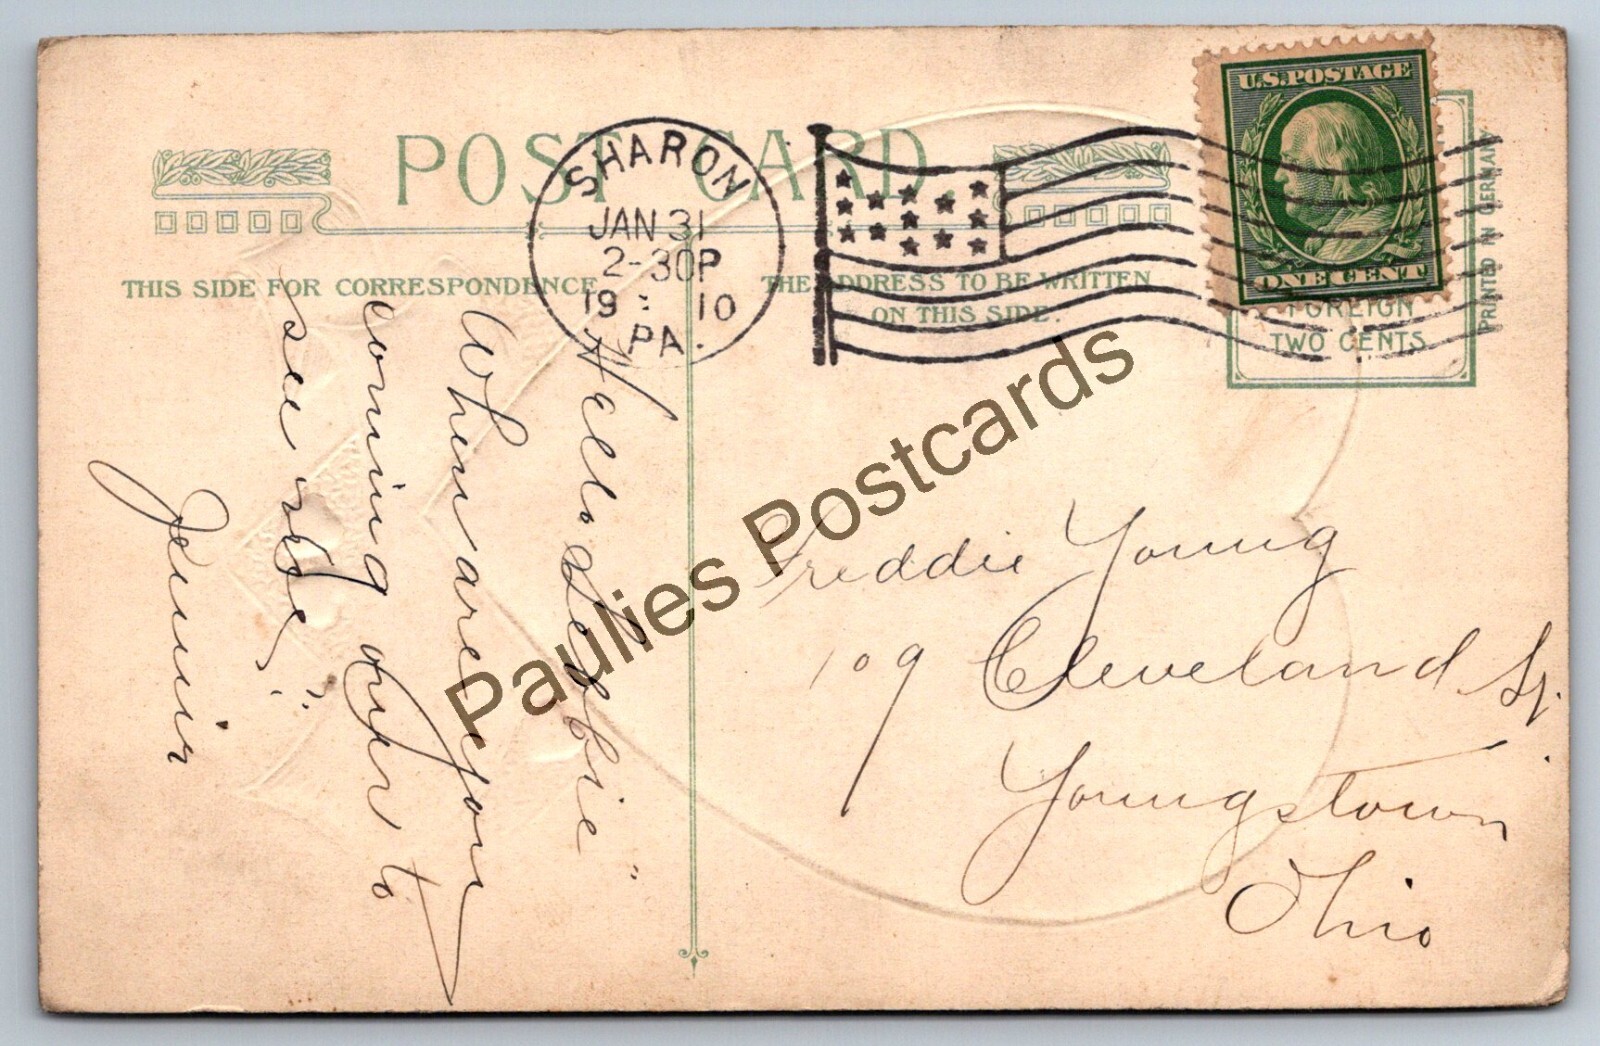 POST CARD.
THIS SIDE FOR CORRESPONDENCE
THE ADDRESS TO BE WRITTEN
ON THIS SIDE.
SHARON
JAN 31
2-30P
19 10
PA.
U.S. POSTAGE
ONE CENT
FOREIGN
TWO CENTS
PRINTED IN GERMANY
Hello
When are you
coming over to
see
Jennie
Freddie Young
109 Cleveland St.
Youngstown
Ohio
Paulies Postcards